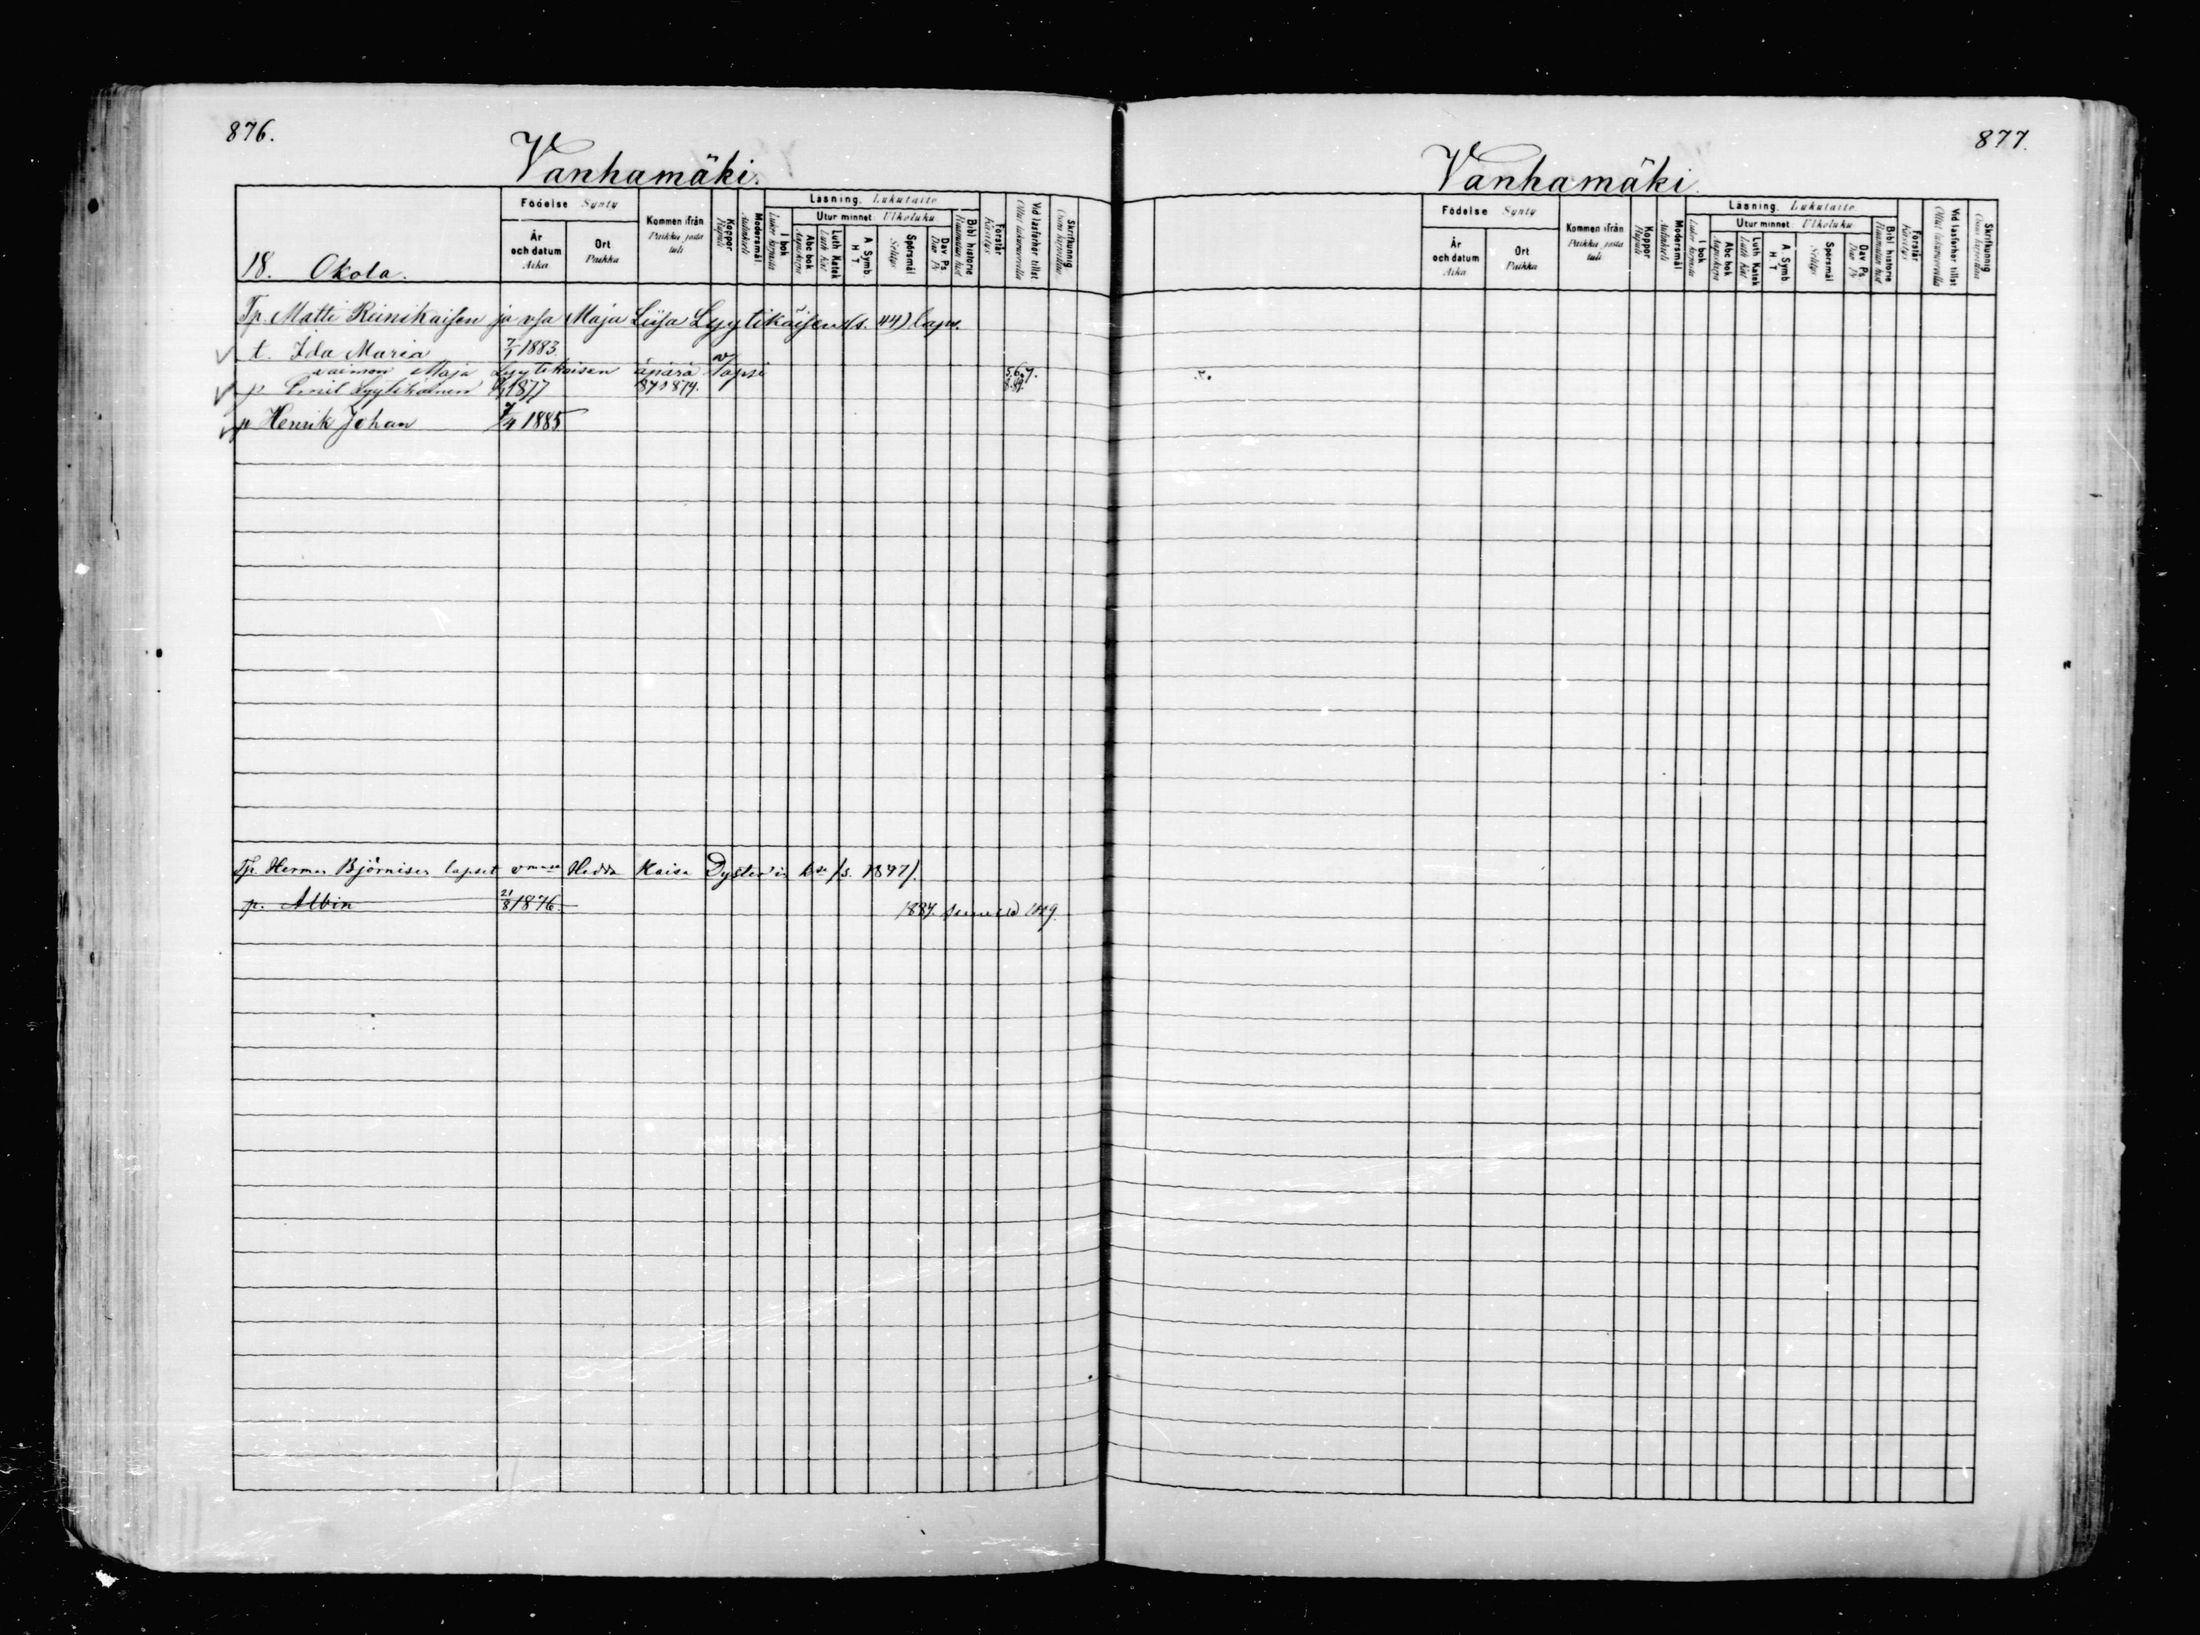 876.
Vanhamäki.
18. Okola.
Födelse Synty
År och datum Aika
Ort Paikka
Kommen ifrån Paikka josta tuli
Koppor Rupuli
Modersmål Äidinkieli
Läsning. Lukutaito
I bok Luker kirjasta
Utur minnet Ulkoluku
Abc bok Aapiskirja
Luth Katek Luth Kat
A Symb. H T
Spörsmål Selitys
Dav Ps Dav Ps
Bibl historie Raamatun hist
Förstår Käsitys
Vid läsförhör tillst. Ollut lukuvuorolla
Skrifkunnig Osaa kirjoittaa
Tp. Matti Reinikaisen ja vsa Maja Liisa Lyytikäisen (s. 44) laps.
t. Ida Maria 7/1 1883.
vaimon Maja Lyytikäisen äpärä lapsi
p Emil Lyytikäinen 1877 873 874. 5.6.7. 8.89.
p Henrik Johan 7/4 1885
Tp. Herman Björnisen lapset Hedda Kaisa (s. 1847).
p. Albin 21/8 1876. 1887. 1029.
877.
Vanhamäki.
Födelse Synty
År och datum Aika
Ort Paikka
Kommen ifrån Paikka josta tuli
Koppor Rupuli
Modersmål Äidinkieli
Läsning. Lukutaito
I bok Luker kirjasta
Utur minnet Ulkoluku
Abc bok Aapiskirja
Luth Katek Luth Kat
A Symb H T
Spörsmål Selitys
Dav Ps Dav Ps
Bibl historie Raamatun hist
Förstår Käsitys
Vid läsförhör tillst Ollut lukuvuorolla
Skrifkunnig Osaa kirjoittaa